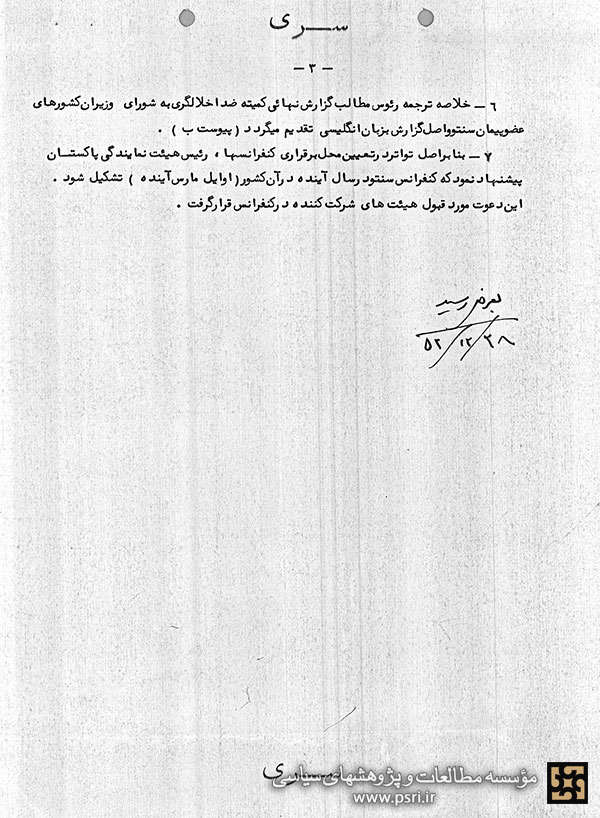 سری
- ۳ -
۶ - خلاصه ترجمه رئوس مطالب گزارش نهائی کمیته ضد اخلالگری به شورای وزیران کشورهای
عضو پیمان سنتو و اصل گزارش بزبان انگلیسی تقدیم میگردد (پیوست ب) .
۷ - بنا بر اصل تواتر در تعیین محل برقراری کنفرانسها ، رئیس هیئت نمایندگی پاکستان
پیشنهاد نمود که کنفرانس سنتو در سال آینده در آن کشور (اوایل مارس آینده) تشکیل شود .
این دعوت مورد قبول هیئت های شرکت کننده در کنفرانس قرار گرفت .
بعرض رسید
۵۲/۱۲/۲۸
سری
مؤسسه مطالعات و پژوهشهای سیاسی
www.psri.ir